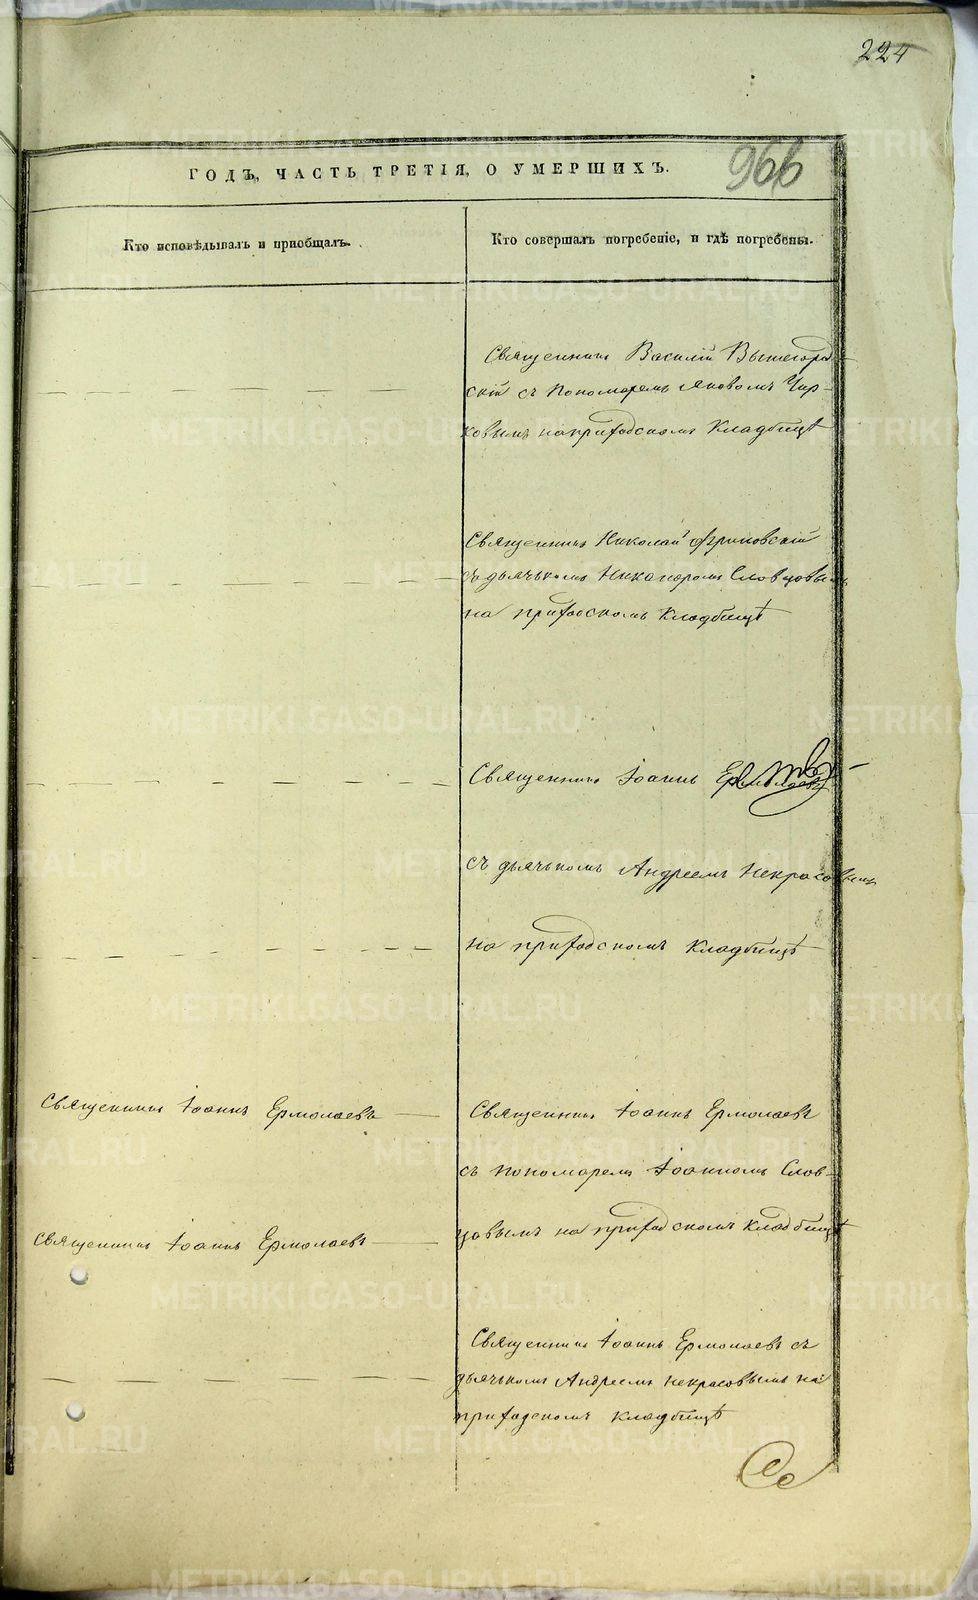 224
966
ГОДЪ, ЧАСТЬ ТРЕТІЯ, О УМЕРШИХЪ.
Кто исповѣдывалъ и пріобщалъ.
Кто совершалъ погребеніе, и гдѣ погребены.
Священникъ Василій Вышегород-
скій съ пономаремъ Яковомъ Чир-
ковымъ на приходскомъ кладбищѣ
Священникъ Николай
съ дьячькомъ Никаноромъ Словцовымъ
на приходскомъ кладбищѣ
Священникъ Іоаннъ Ермолаевъ
съ дьячькомъ Андреемъ Некрасовымъ
на приходскомъ кладбищѣ
Священникъ Іоаннъ Ермолаевъ
Священникъ Іоаннъ Ермолаевъ
съ пономаремъ Іоанномъ Слов-
цовымъ на приходскомъ кладбищѣ
Священникъ Іоаннъ Ермолаевъ
Священникъ Іоаннъ Ермолаевъ съ
дьячькомъ Андреемъ Некрасовымъ на
приходскомъ кладбищѣ
METRIKI.GASO-URAL.RU